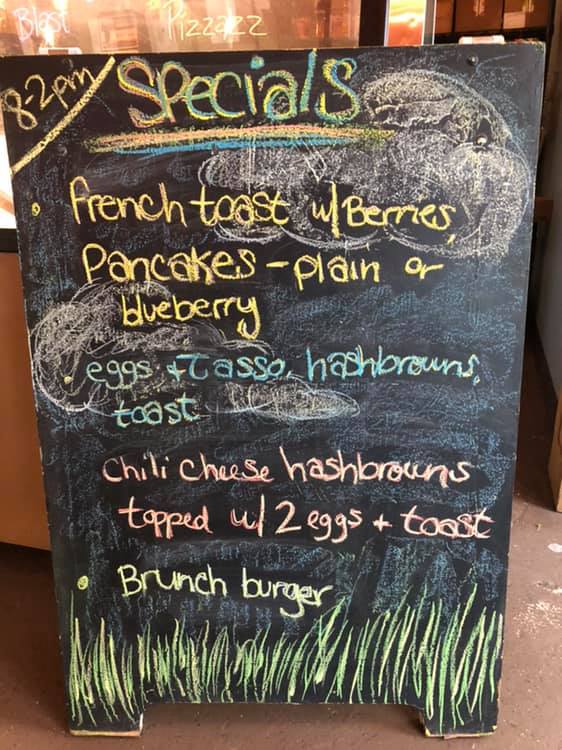 Blast
Pizzazz
8-2pm
Specials
French toast w/Berries,
Pancakes - plain or
blueberry
eggs + Tasso, hashbrowns,
toast
Chili cheese hashbrowns
topped w/ 2 eggs + toast
Brunch burger